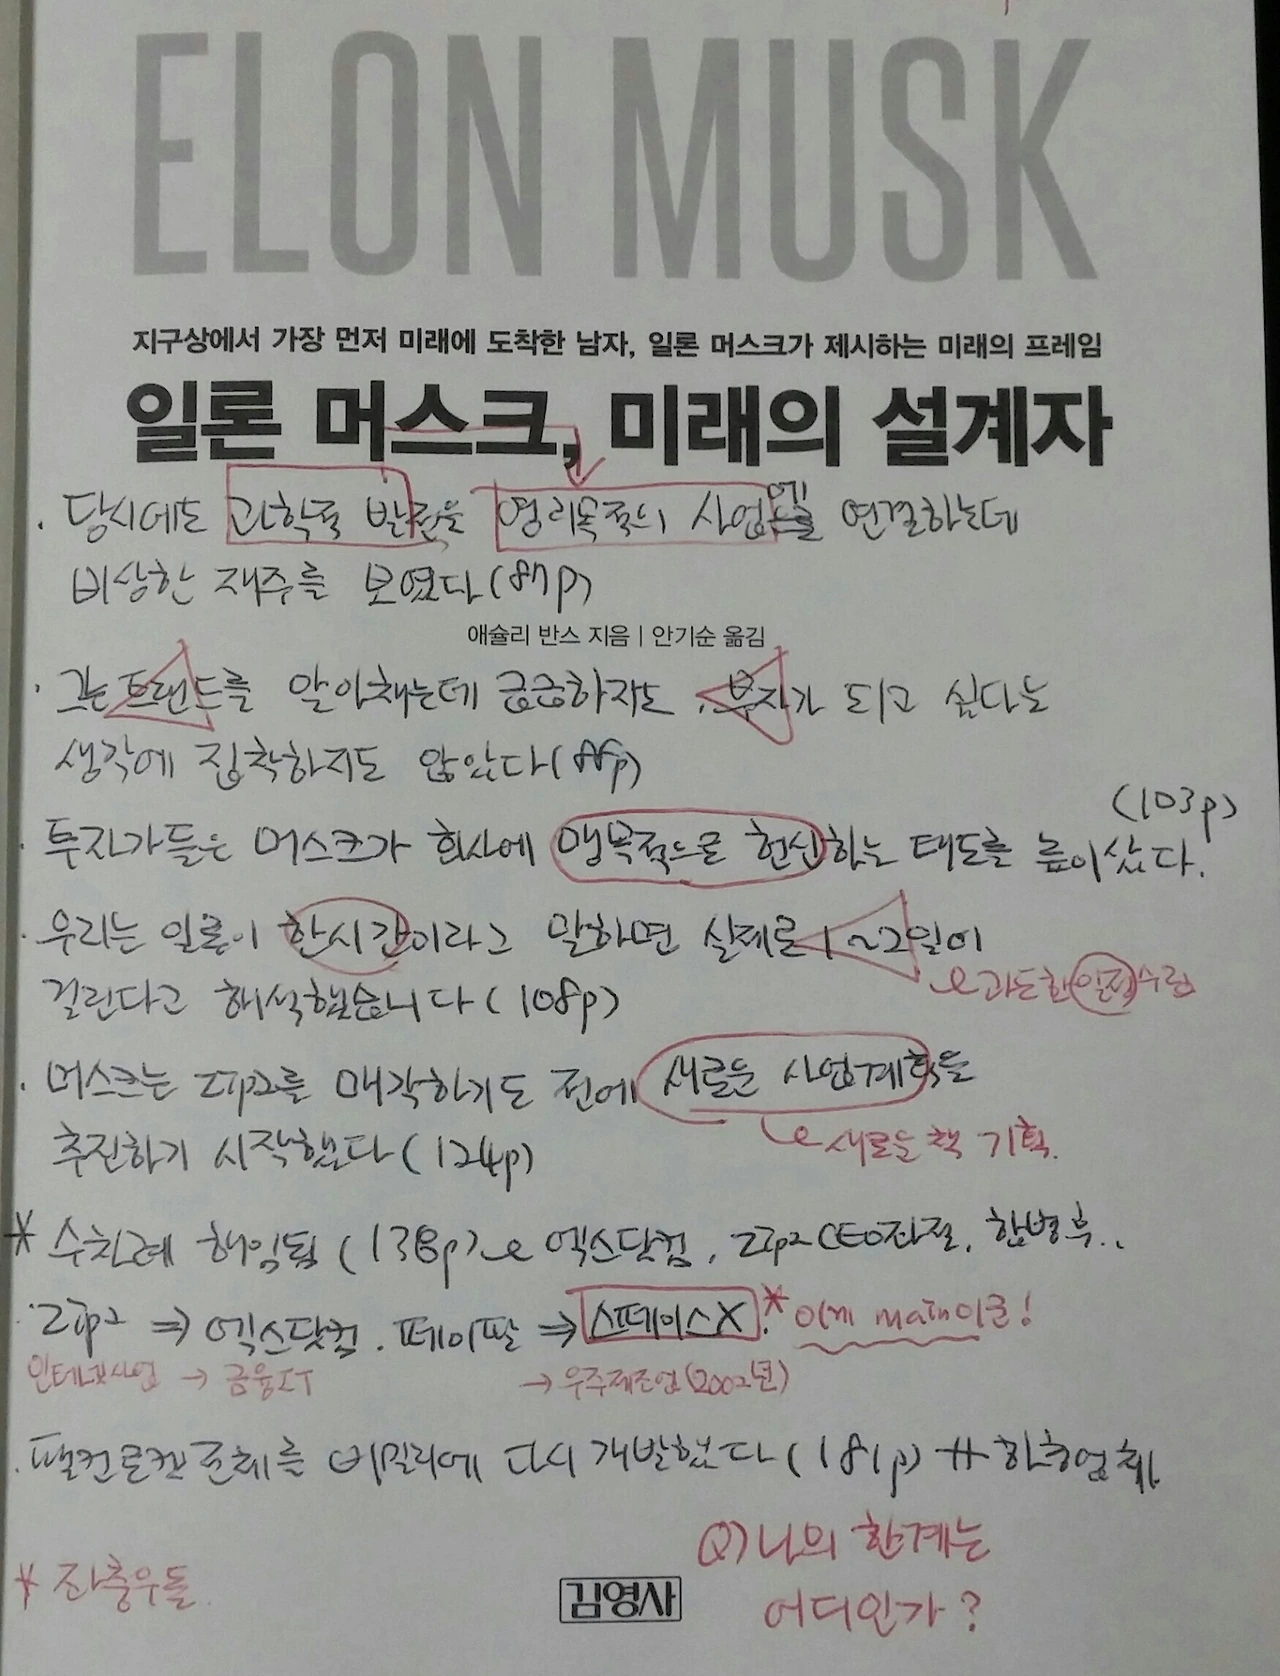 ELON MUSK
지구상에서 가장 먼저 미래에 도착한 남자, 일론 머스크가 제시하는 미래의 프레임
일론 머스크, 미래의 설계자
· 당시에도 과학적 발전을 영리목적의 사업에 연결하는데
비상한 재주를 보였다(87p)
애슐리 반스 지음 | 안기순 옮김
· 그는 트랜드를 알아채는데 급급하지도, 부자가 되고 싶다는
생각에 집착하지도 않았다(88p)
(103p)
· 투자가들은 머스크가 회사에 맹목적으로 헌신하는 태도를 높이 샀다.
· 우리는 일론이 한시간이라고 말하면 실제로 1~2일이
과도한 일정수립
걸린다고 해석했습니다(108p)
· 머스크는 zip2를 매각하기도 전에 새로운 사업계획을
추진하기 시작했다(124p)
새로운 책 기획.
* 수차례 해임됨(138p) 엑스닷컴, zip2 CEO좌절, 합병후..
· zip2 ⇒ 엑스닷컴. 페이팔 ⇒ 스페이스X.* 이게 main이군!
인터넷사업 → 금융IT → 우주제조업(2002년)
· 팰컨로켓 본체를 비밀리에 다시 개발했다(181p) # 하청업체
Q) 나의 한계는
* 좌충우돌.
김영사
어디인가?